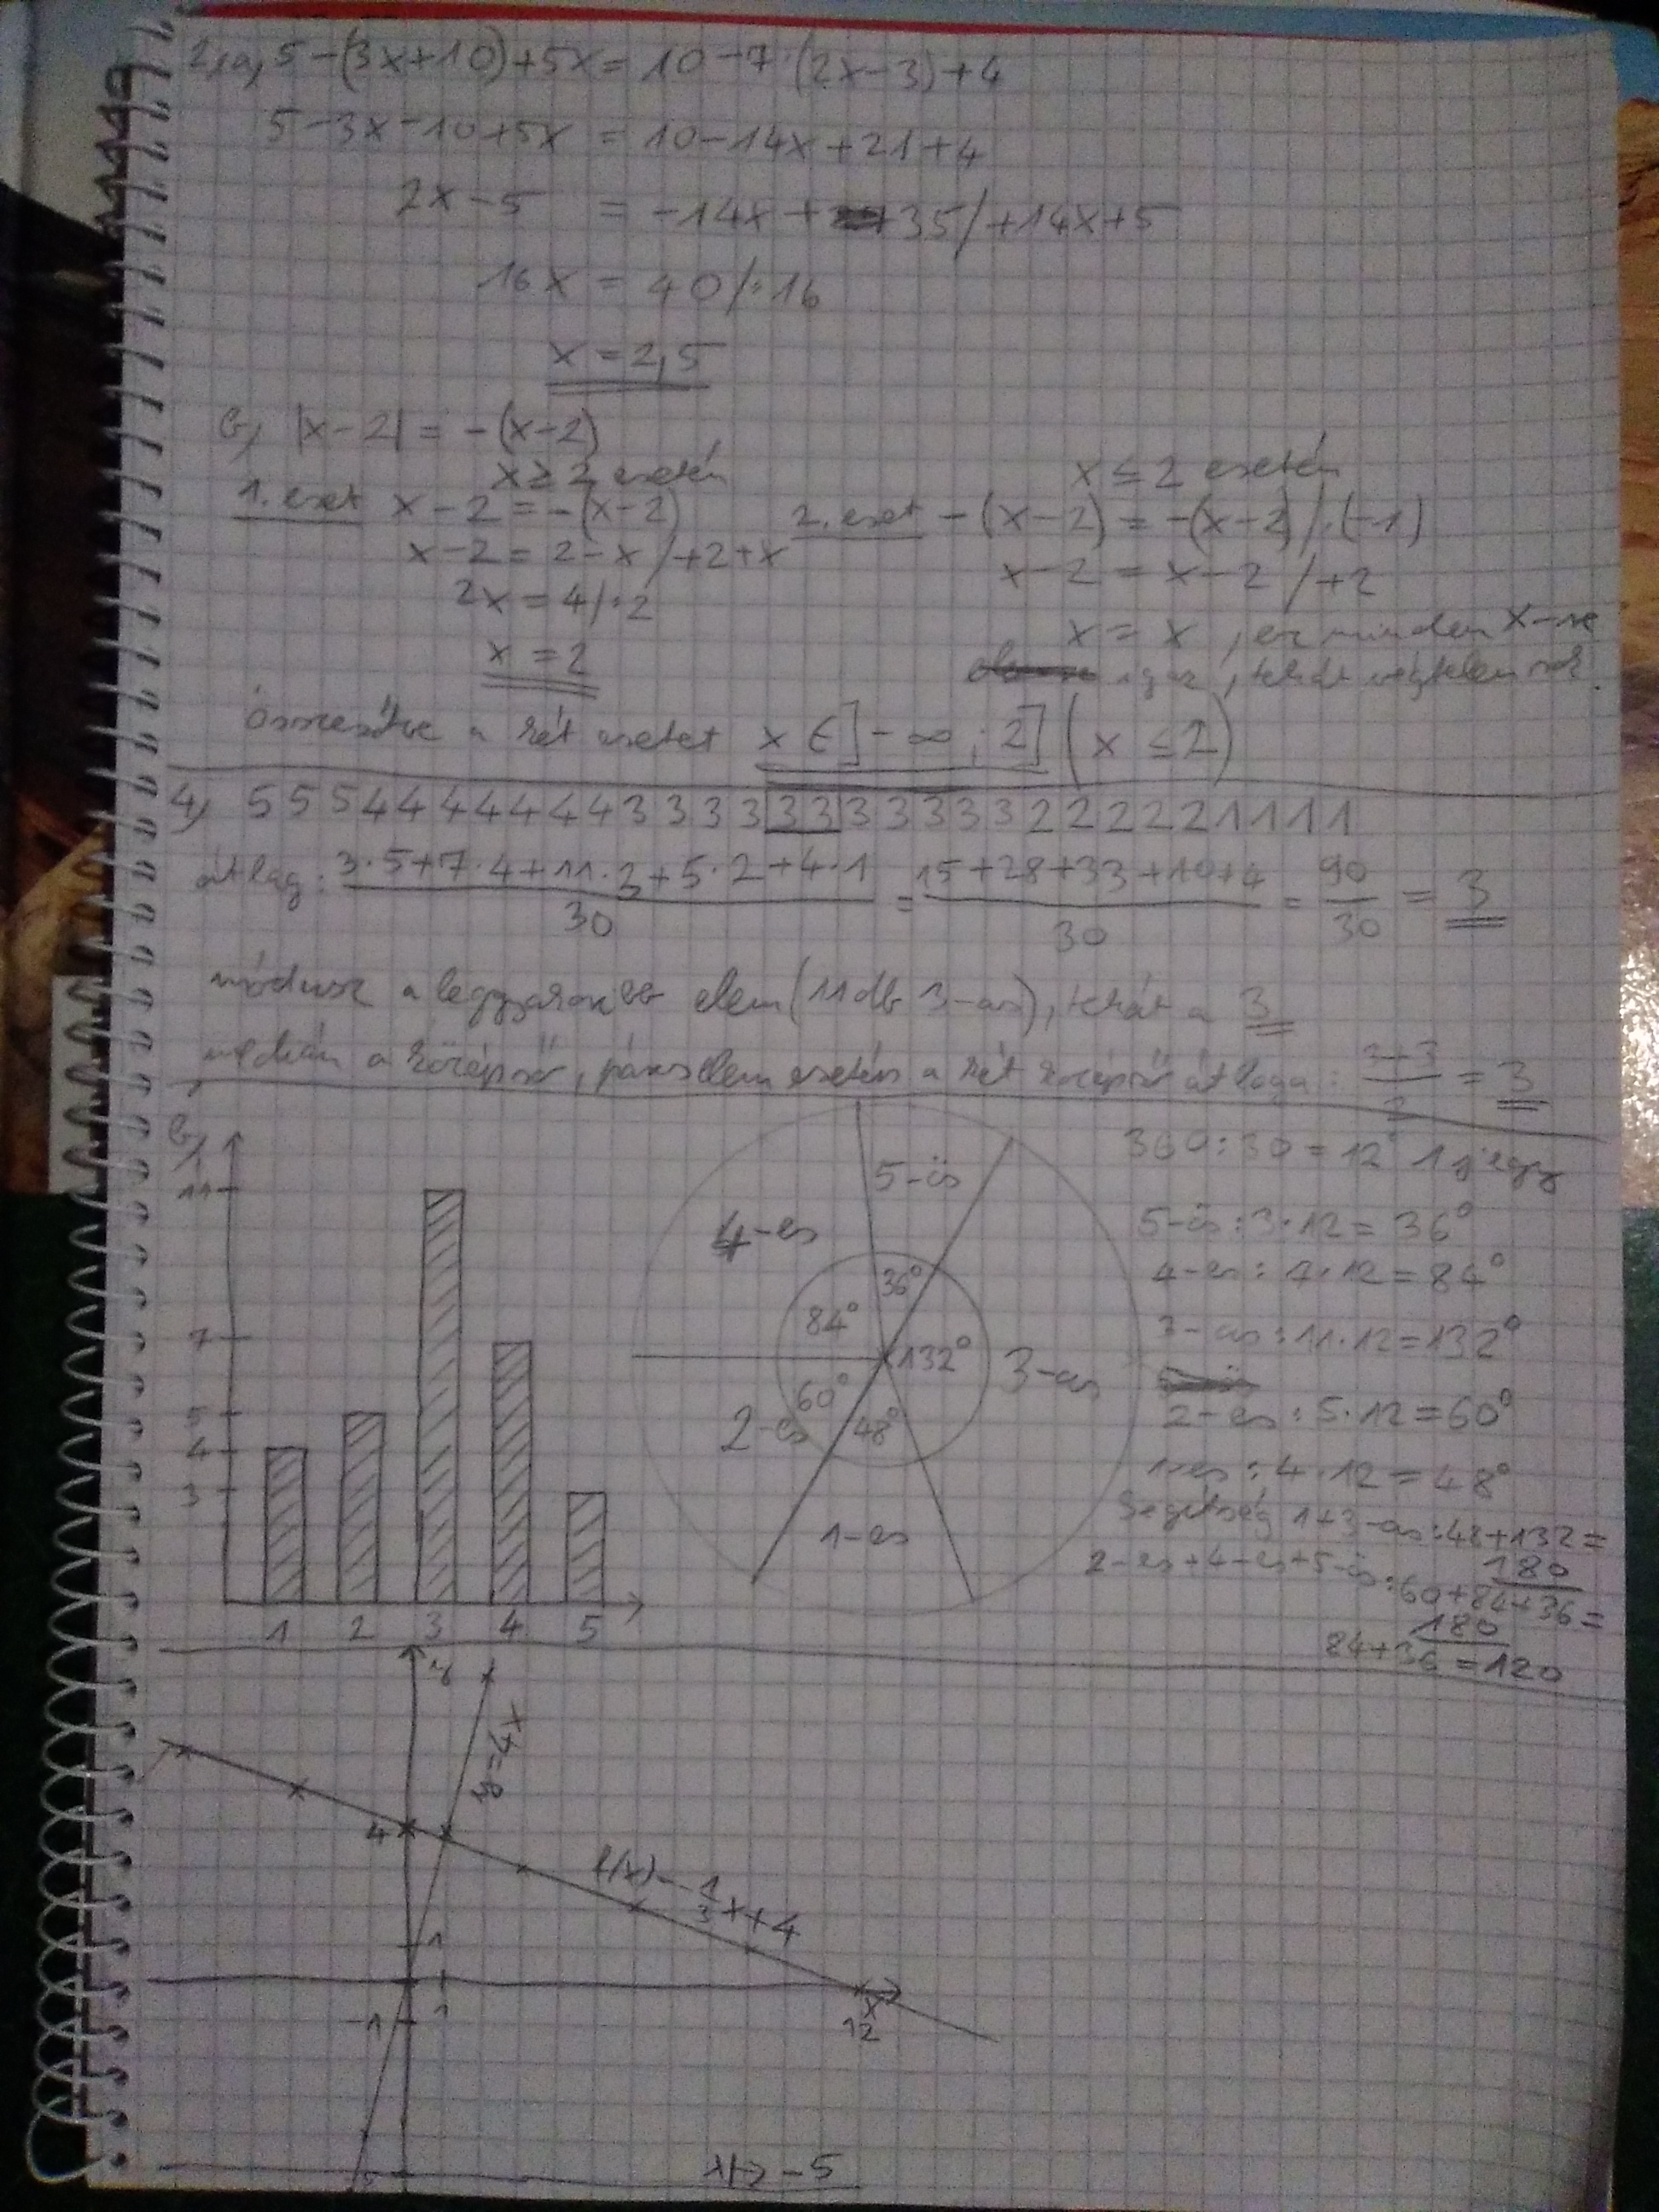 2,a, 5-(3x+10)+5x= 10-7·(2x-3)+4
5-3x-10+5x = 10-14x+21+4
2x-5 = -14x+35/+14x+5
16x = 40/:16
x=2,5
b, |x-2| = -(x-2)
x≥2 esetén
1. eset x-2=-(x-2)
x-2=2-x/+2+x
2x=4/:2
x=2
x≤2 esetén
2. eset -(x-2)=-(x-2)/·(-1)
x-2=x-2/+2
x=x, ez minden x-re
igaz, tehát végtelen sok.
összesítve a két esetet x∈]-∞;2] (x≤2)
4, 5 5 5 4 4 4 4 4 4 4 3 3 3 3 3 3 3 3 3 3 3 2 2 2 2 2 1 1 1 1
átlag: (3·5+7·4+11·3+5·2+4·1)/30 = (15+28+33+10+4)/30 = 90/30 = 3
módusz a leggyakoribb elem (11db 3-as), tehát a 3
medián a középső, páros elem esetén a két középső átlaga: (3+3)/2 = 3
b,
11
7
5
4
3
1 2 3 4 5
5-ös
4-es
36°
84°
132° 3-as
60°
2-es
48°
1-es
360:30=12° 1 jegy
5-ös: 3·12=36°
4-es: 7·12=84°
3-as: 11·12=132°
2-es: 5·12=60°
1-es: 4·12=48°
Segítség 1+3-as: 48+132=
180
2-es+4-es+5-ös: 60+84+36=
180
84+36=120
y
4
1
1
-1
x
12
f(x)=-1/3x+4
-5
x↦-5